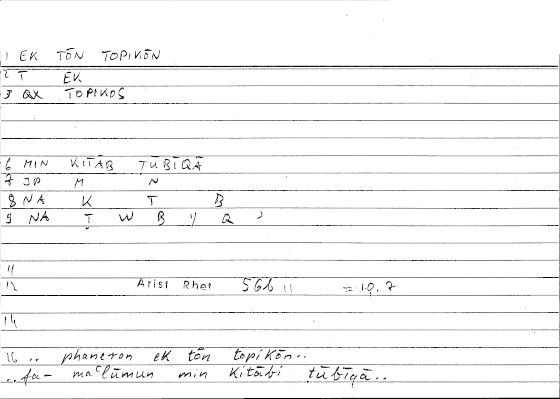 1 EK TŌN TOPIKŌN
2 T EK
3 QX TOPIKOS
6 MIN KITĀB ṬŪBĪQĀ
7 JP M N
8 NA K T B
9 NA Ṭ W B Y Q ʾ
11
12 Arist Rhet 56b 11 = 10.7
14
16 .. phaneron ek tōn topikōn..
..fa- maʿlūmun min Kitābi ṭūbīqā..